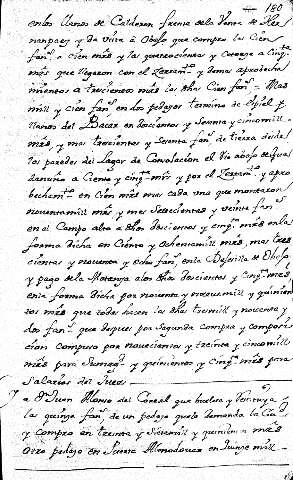 180
en los llanos de Calderon frente de la Venta de
y da vista a Obejo que compro las Cien
fan.s a Cien mrs y las quatrocientas y
mas que llegaron con el y demas
a trescientos mrs las dhas Cien fan.s = Mas
mill y Cien fan.s en dos pedazos termino de Espiel y
llanos del Bacar en doscientos y Sesenta y cinco mill
mrs, y mas trescientas y Sesenta fan.s de tierra desde
las paredes del Lagar de Consolacion el Viejo
a Ciento y cinq.ta mrs y por el y apro
becham.to en Cien mrs mas cada una que montaron
noventa mill mrs, y mas Setecientas y veinte fan.s
en el Campo alto a dhos doscientos y cinq.ta mrs en la
forma dicha en Ciento y Ochenta mill mrs, mas tres
cientas y noventa y ocho fan.s en la de Obejo
y pago de la a los dhos doscientos y cinq.ta mrs
en la forma dicha por noventa y nueve mill y quinien
tos mrs que todas hacen las dhas tres mill y noventa y
dos fan.s que despues por Segunda compra y composi
cion compuso por novecientos y treinta y cinco mill
mrs para Su Mag.d y quinientos y cinq.ta mrs para
Salarios del Juez
A D.n Juan Alonso del Corral que buelva y restituya a
la quinze fan.s de un pedazo que lo demanda la Ciu.d
y compro en treinta y Siete mill y quinien.s mrs
otro pedazo en Sierra Almodovar en quinze mill